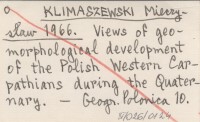 o KLIMASZEWSKI Mieczy-
sław 1966. Views of geo-
morphological development
of the Polish Western Car-
pathians during the Quater-
nary. — Geogr. Polonica 10.